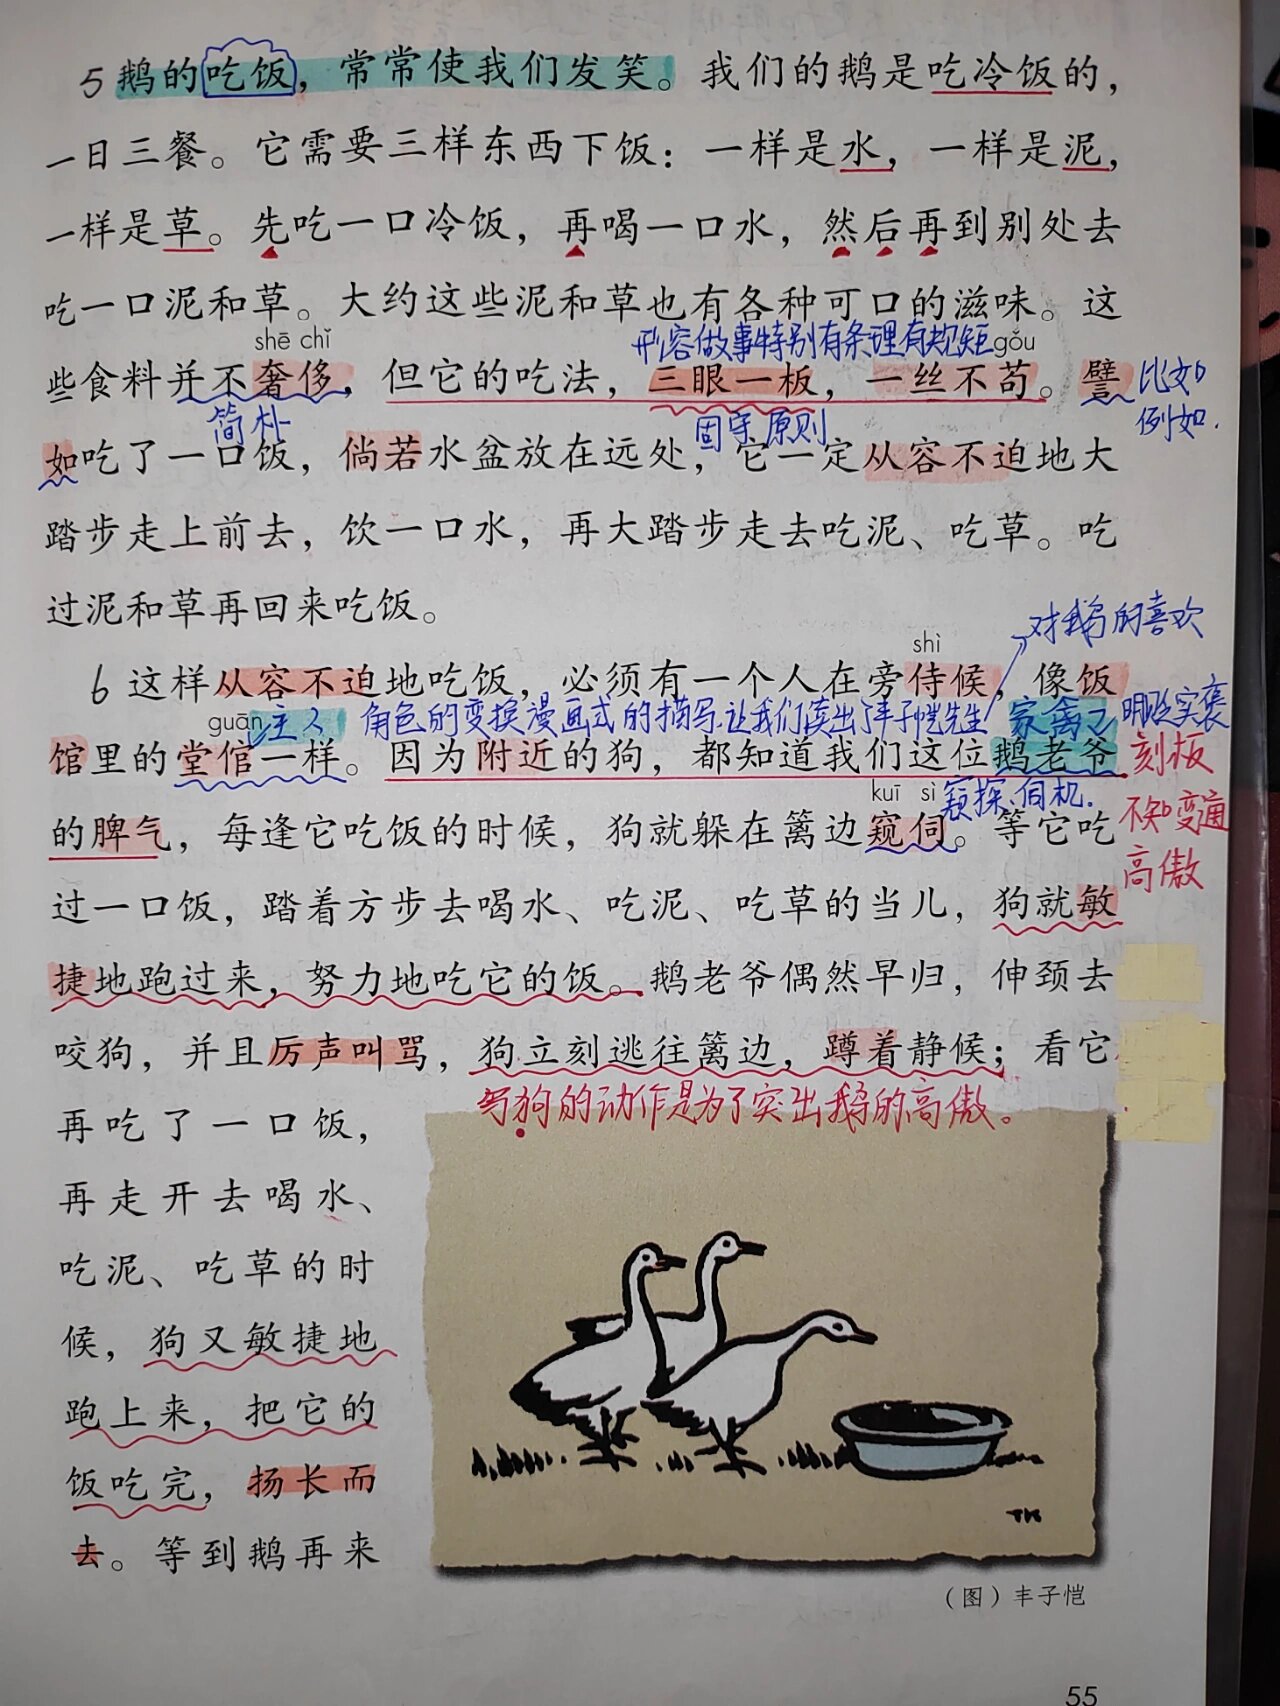 5 鹅的吃饭，常常使我们发笑。我们的鹅是吃冷饭的，
一日三餐。它需要三样东西下饭：一样是水，一样是泥，
一样是草。先吃一口冷饭，再喝一口水，然后再到别处去
吃一口泥和草。大约这些泥和草也有各种可口的滋味。这
shē chǐ
形容做事特别有条理有规矩
gǒu
些食料并不奢侈，但它的吃法，三眼一板，一丝不苟。譬
比如
例如.
简朴
固守原则
如吃了一口饭，倘若水盆放在远处，它一定从容不迫地大
踏步走上前去，饮一口水，再大踏步走去吃泥、吃草。吃
过泥和草再回来吃饭。
对鹅的喜欢
shì
6 这样从容不迫地吃饭，必须有一个人在旁侍候，像饭
guān
主人
角色的变换漫画式的描写.让我们读出了丰子恺先生
家禽
明贬实褒
馆里的堂倌一样。因为附近的狗，都知道我们这位鹅老爷
刻板
kuī sì
窥探、伺机.
不知变通
的脾气，每逢它吃饭的时候，狗就躲在篱边窥伺。等它吃
高傲
过一口饭，踏着方步去喝水、吃泥、吃草的当儿，狗就敏
捷地跑过来，努力地吃它的饭。鹅老爷偶然早归，伸颈去
咬狗，并且厉声叫骂，狗立刻逃往篱边，蹲着静候；看它
写狗的动作是为了突出鹅的高傲。
再吃了一口饭，
再走开去喝水、
吃泥、吃草的时
候，狗又敏捷地
跑上来，把它的
饭吃完，扬长而
去。等到鹅再来
TK
（图）丰子恺
55